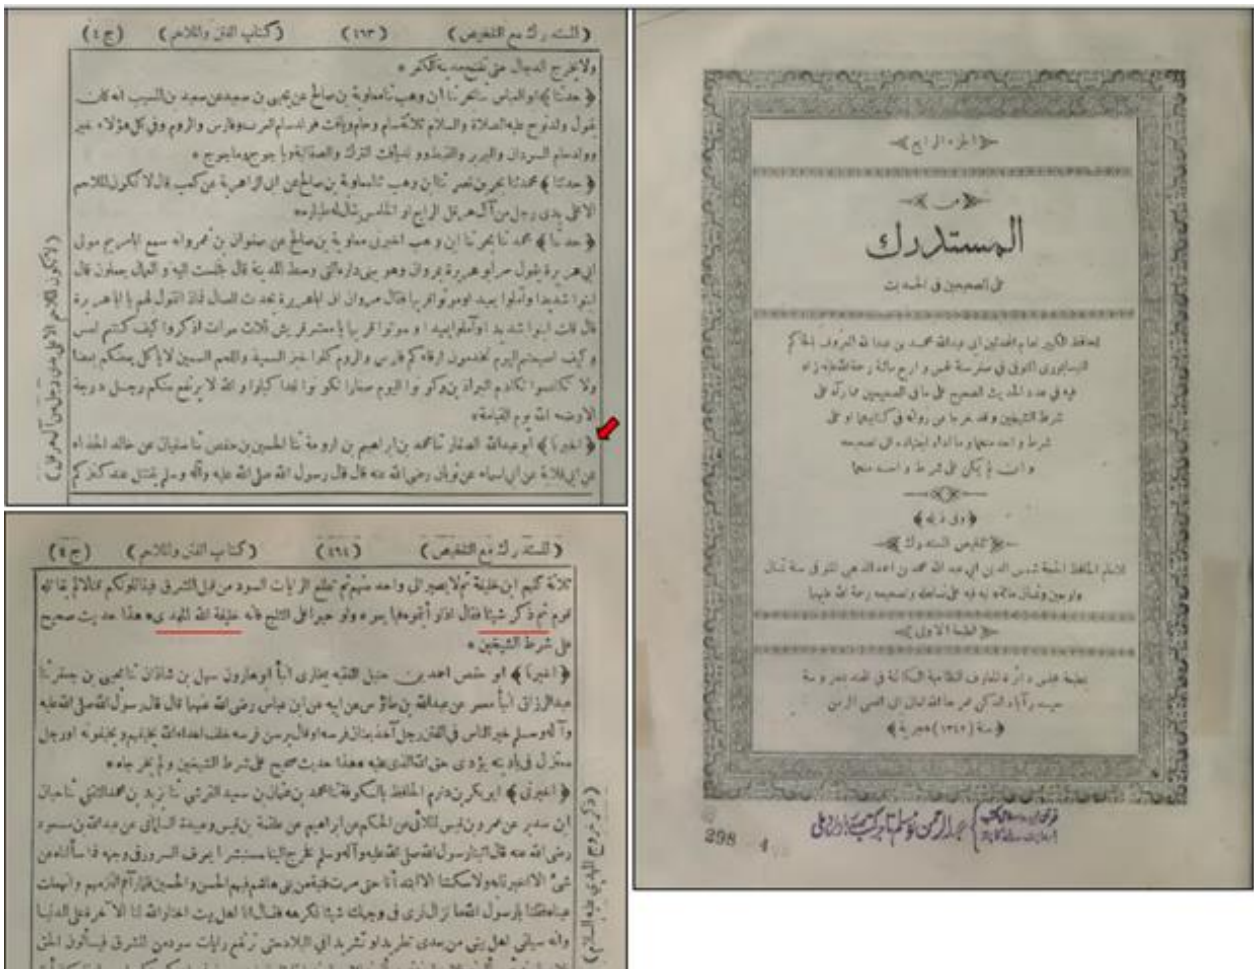 (المستدرك مع التلخيص) (٤٦٣) (كتاب الفتن والملاحم) (ج ٤)
ولا يخرج الدجال حتى تفتح مدينة الكفر *
﴿ حدثنا ﴾ ابو العباس ثنا بحر ثنا ابن وهب ثنا معاوية بن صالح عن يحيى بن سعيد عن سعيد بن المسيب انه كان
يقول ولد نوح عليه الصلاة والسلام ثلاثة سام وحام ويافث فولد سام العرب وفارس والروم وفي كل هؤلاء خير
وولد حام السودان والبربر والقبط وولد يافث الترك والصقالبة وياجوج وماجوج *
﴿ حدثنا ﴾ محمد ثنا بحر بن نصر ثنا ابن وهب ثنا معاوية بن صالح عن ابى الزاهرية عن كعب قال لا تكون الملاحم
الا على يدى رجل من آل هرقل الرابع او الخامس يقال له طيارة *
﴿ حدثنا ﴾ محمد ثنا بحر ثنا ابن وهب اخبرنى معاوية بن صالح عن صفوان بن عمرو انه سمع ابا مريم مولى
ابى هريرة يقول مر ابو هريرة بمروان وهو يبنى داره التى وسط المدينة قال فجلست اليه و العمال يعملون قال
ابنوا شديدا وآملوا بعيدا وموتوا قريبا فقال مروان ان اباهريرة يحدث العمال فماذا تقول لهم يا ابا هريرة
قال قلت ابنوا شديدا وآملوا بعيدا و موتوا قريبا يا معشر قريش ثلاث مرات اذكروا كيف كنتم امس
و كيف اصبحتم اليوم تخدمون ارقاءكم فارس والروم كلوا خبز السميد واللحم السمين لا يأكل بعضكم بعضا
ولا تكادموا تكادم البراذين وكونوا اليوم صغارا تكونوا غدا كبارا و الله لا يرتفع منكم رجل درجة
الا وضعه الله يوم القيامة *
﴿ اخبرنا ﴾ ابو عبدالله الصفار ثنا محمد بن ابراهيم بن ارومة ثنا الحسين بن حفص ثنا سفيان عن خالد الحذاء
عن ابى قلابة عن ابى اسماء عن ثوبان رضى الله عنه قال قال رسول الله صلى الله عليه وآله وسلم يقتتل عند كنزكم
(لا تكون الملاحم الا على يدى رجل من آل هرقل)
(المستدرك مع التلخيص) (٤٦٤) (كتاب الفتن والملاحم) (ج ٤)
ثلاثة كلهم ابن خليفة ثم لا يصير الى واحد منهم ثم تطلع الرايات السود من قبل المشرق فيقاتلونكم قتالا لم يقاتله
قوم ثم ذكر شيئا فقال اذا رأيتموه فبايعوه ولو حبوا على الثلج فانه خليفة الله المهدى * هذا حديث صحيح
على شرط الشيخين *
﴿ اخبرنا ﴾ ابو حفص احمد بن حنبل الفقيه ببخارى انبأ ابو هارون سهل بن شاذان ثنا يحيى بن جعفر ثنا
عبدالرزاق انبأ معمر عن عبدالله بن طاؤس عن ابيه عن ابن عباس رضى الله عنهما قال قال رسول الله صلى الله عليه
وآله وسلم خير الناس فى الفتن رجل آخذ بعنان فرسه او قال برسن فرسه خلف اعداء الله يخيفهم و يخيفونه او رجل
معتزل فى باديته يؤدى حق الله الذى عليه * هذا حديث صحيح على شرط الشيخين ولم يخرجاه *
﴿ اخبرنى ﴾ ابوبكر بن دارم الحافظ بالكوفة ثنا محمد بن عثمان بن سعيد القرشى ثنا يزيد بن محمد الثقفى ثنا حبان
ابن سدير عن عمرو بن قيس الملائى عن الحكم عن ابراهيم عن علقمة بن قيس وعبيدة السلمانى عن عبدالله بن مسعود
رضى الله عنه قال اتينا رسول الله صلى الله عليه وآله وسلم فخرج الينا مستبشرا يعرف السرور فى وجهه فما سألناه عن
شئ الا اخبرنا به ولا سكتنا الا ابتدأنا حتى مرت فتية من بنى هاشم فيهم الحسن والحسين فلما رآهم التزمهم وانهملت
عيناه فقلنا يا رسول الله ما نزال نرى فى وجهك شيئا نكرهه فقال انا اهل بيت اختار الله لنا الآخرة على الدنيا
وانه سيلقى اهل بيتى من بعدى تطريدا و تشريدا فى البلاد حتى ترتفع رايات سود من المشرق فيسألون الحق
(ذكر خروج المهدى عليه السلام)
﴿الجزء الرابع﴾
من
المستدرك
على الصحيحين فى الحديث
للحافظ الكبير امام المحدثين ابى عبدالله محمد بن عبدالله المعروف بالحاكم
النيسابورى المتوفى فى صفر سنة خمس و اربع مائة رحمة الله عليه زاد
فيه فى عدد الحديث الصحيح على ما فى الصحيحين مما رآه على
شرط الشيخين وقد خرجا عن رواته فى كتابيهما او على
شرط واحد منهما وما اداه اجتهاده الى تصحيحه
و ان لم يكن على شرط واحد منهما
﴿وفى ذيله﴾
تلخيص المستدرك
للامام الحافظ الحجة شمس الدين ابى عبد الله محمد بن احمد الذهبى المتوفى سنة ثمان
واربعين وثمان مائة
﴿الطبعة الاولى﴾
بمطبعة مجلس دائرة المعارف النظامية الكائنة فى الهند بمحروسة
حيدر آباد الدكن عمرها الله تعالى الى اقصى الزمن
﴿سنة (١٣٤٢) هجرية﴾
298 4